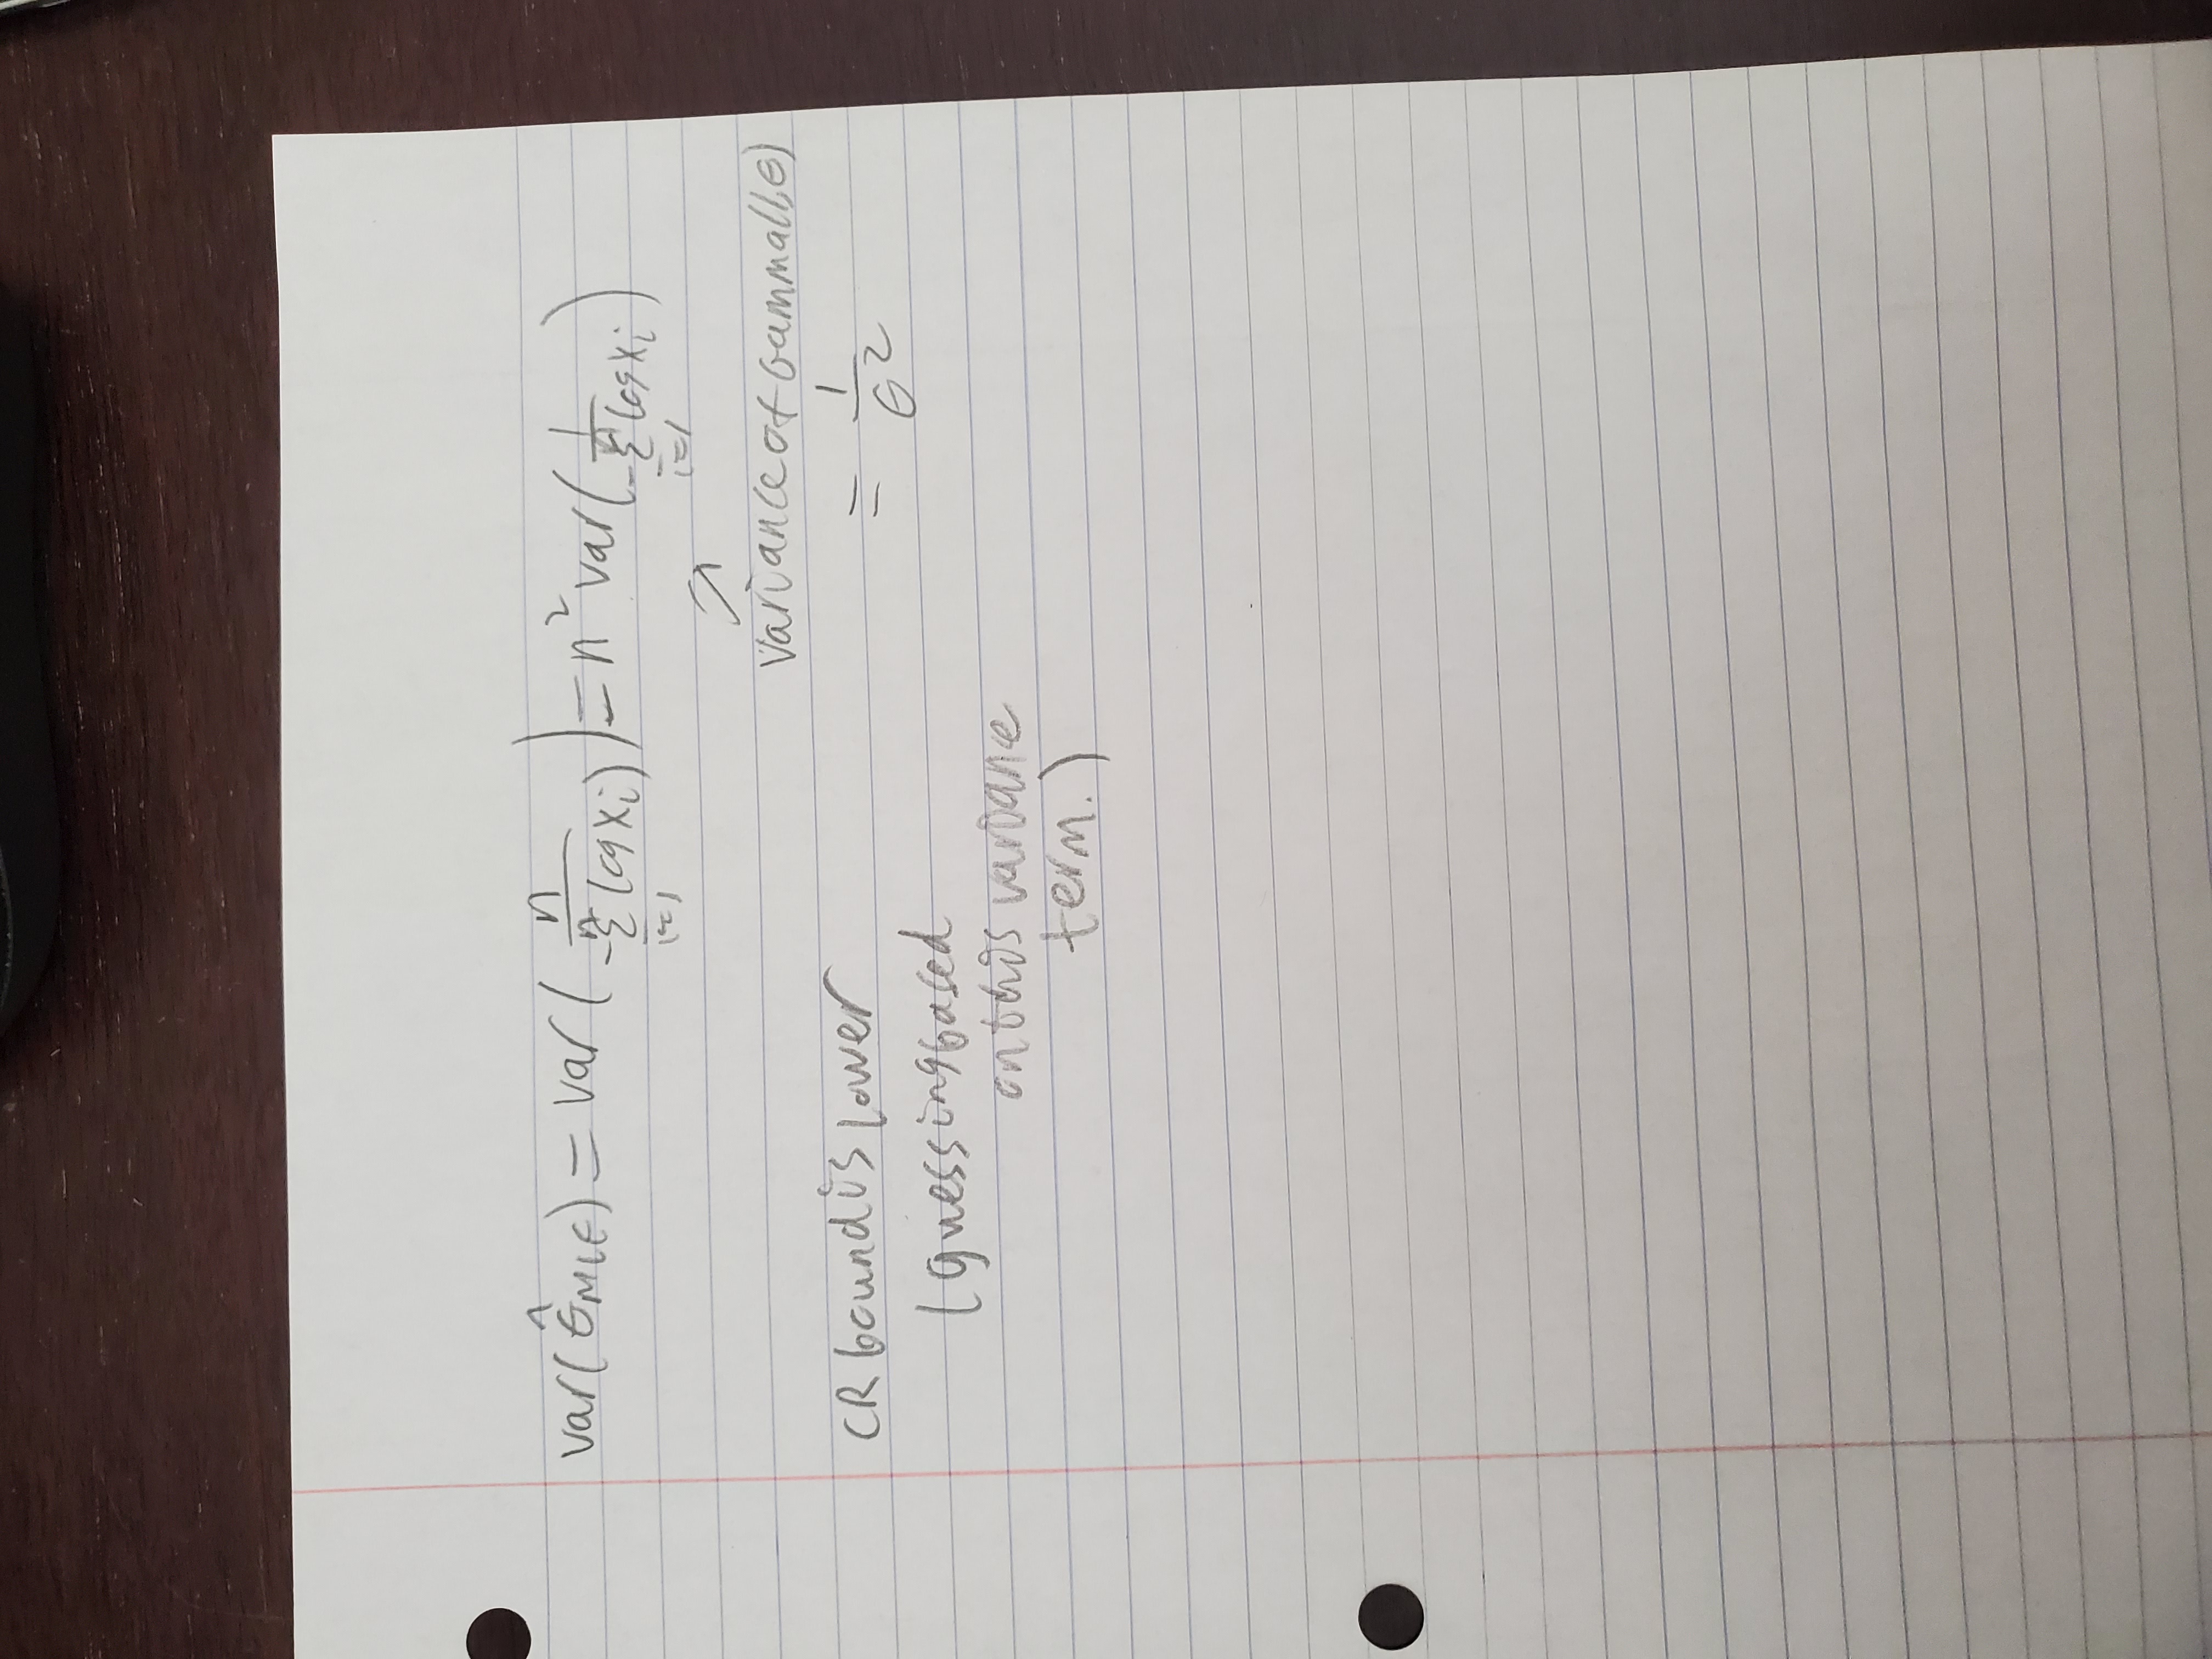 var(θ̂MLE) = var(n / -Σⁿᵢ₌₁(log xᵢ)) = n² var(1 / -Σⁿᵢ₌₁ log xᵢ)
↗
variance of Gamma(1,θ)
= 1/θ²
CR bound is lower
(guessing based
on this variance
term.)